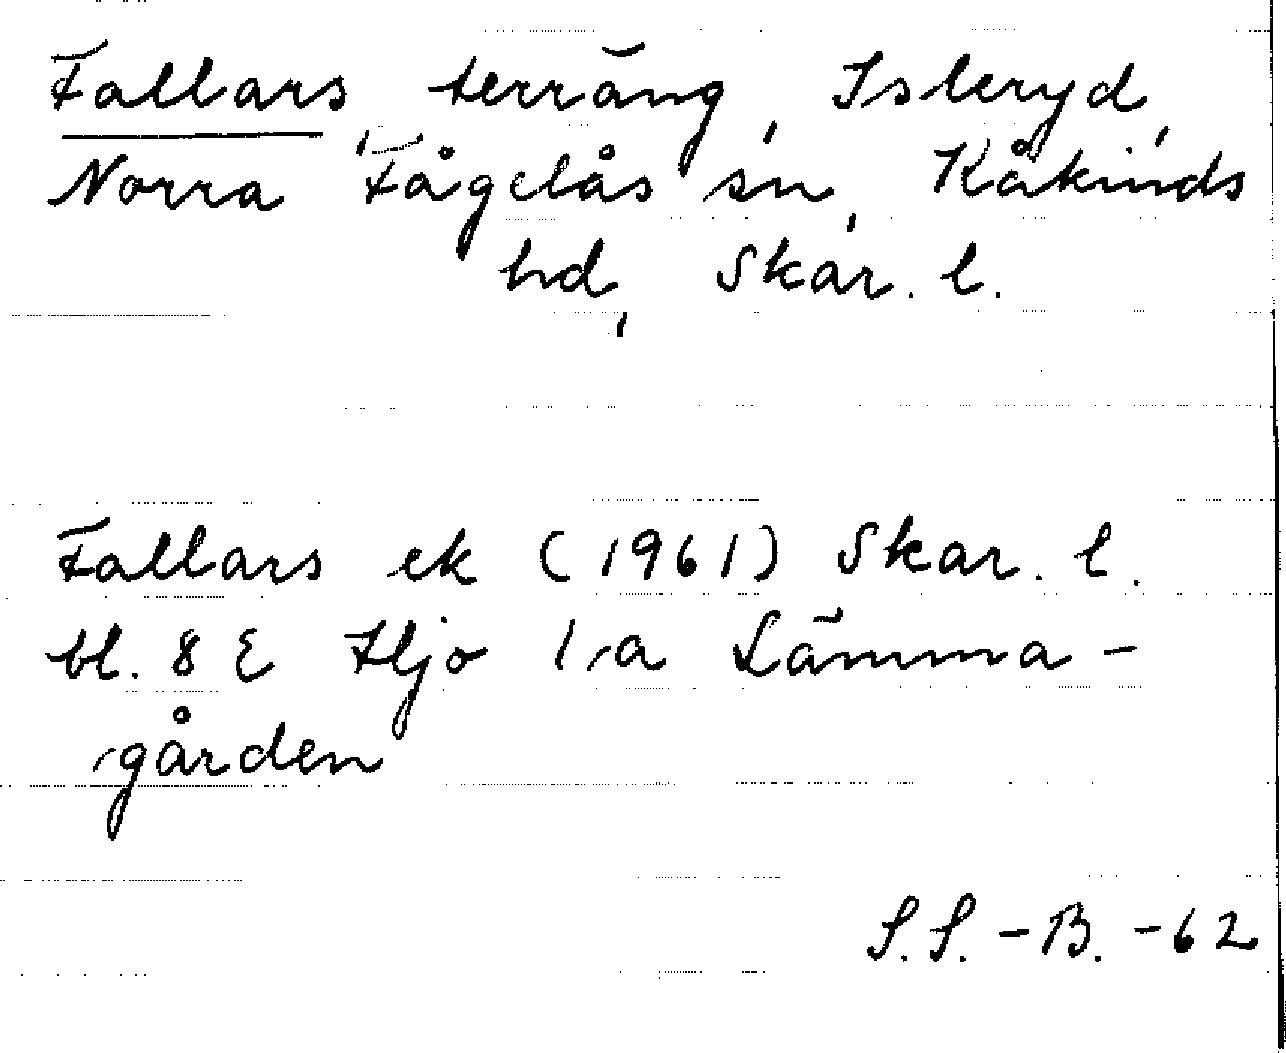 Fallars, terräng, Isleryd,
Norra Fågelås sn, Kåkinds
hd, Skar. l.
Fallars ek (1961) Skar. l.
bl. 8 E Hjo 1, a Lämma-
gården
S.S.-B. -62